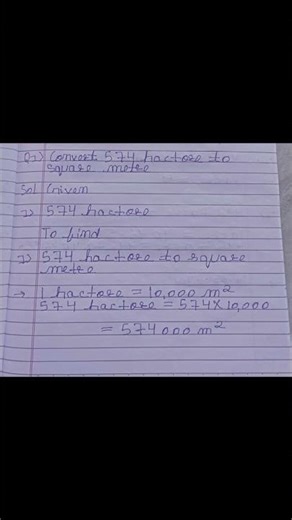 Q1) Convert 574 hactore to
square metre
Sol Given
1) 574 hactore
To find
1) 574 hactore to square
metre
→ 1 hactore = 10,000 m²
574 hactore = 574 x 10,000
= 574 000 m²